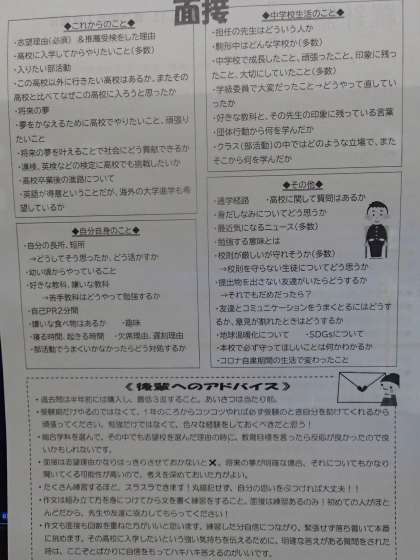 面接
◆これからのこと◆
・志望理由(必須) &推薦受検をした理由
・高校に入学してからやりたいこと(多数)
・入りたい部活動
・この高校以外に行きたい高校はあるか、またその
高校と比べてなぜこの高校に入ろうと思ったか
・将来の夢
・夢をかなえるために高校でやりたいこと、頑張り
たいこと
・将来の夢を叶えることで社会にどう貢献できるか
・漢検、英検などの検定に高校でも挑戦したいか
・高校卒業後の進路について
・英語が得意ということだが、海外の大学進学も希
望しているか
◆中学校生活のこと◆
・担任の先生はどういう人か
・駒形中はどんな学校か(多数)
・中学校で成長したこと、頑張ったこと、印象に残っ
たこと、大切にしていたこと(多数)
・学級委員で大変だったこと→どうやって直してい
ったか
・好きな教科と、その先生の印象に残っている言葉
・団体行動から何を学んだか
・クラス(部活動)の中ではどのような立場で、また
そこから何を学んだか
◆自分自身のこと◆
・自分の長所、短所
→どうしてそう思ったか、どう活かすか
・幼い頃からやっていること
・好きな教科、嫌いな教科
→苦手教科はどうやって勉強するか
・自己PR2分間
・嫌いな食べ物はあるか ・趣味
・寝る時間、起きる時間 ・欠席理由、遅刻理由
・部活動でうまくいかなかったらどう対処するか
◆その他◆
・通学経路 ・高校に関して質問はあるか
・身だしなみについてどう思うか
・最近気になるニュース(多数)
・勉強する意味とは
・校則が厳しいが守れそうか(多数)
→校則を守らない生徒についてどう思うか
・提出物を出さない友達がいたらどうするか
→それでもだめだったら？
・友達とコミュニケーションをうまくとるにはどうす
るか、意見が割れたときはどうするか
・地球温暖化について ・SDGsについて
・本校で必ず守ってほしいことは何かわかるか
・コロナ自粛期間の生活で変わったこと
《後輩へのアドバイス》
・過去問は半年前には購入し、最低3周すること。あいさつは当たり前。
・受験期だけやるのではなくて、1年のころからコツコツやれば必ず受験のとき自分を助けてくれるから
頑張ってください。勉強だけではなくて、色々な経験をしておくべきだと思う！
・総合学科を選んで、その中でも志望校を選んだ理由の時に、教育目標を言ったら反応が良かったので良
いかもしれないです。
・面接は志望理由がなりはっきりさせておかないと✖。将来の夢が明確な場合、それについてもかなり
聞いてくる可能性が高いので、考えを深めておいた方がよい。
・たくさん練習するほど、スラスラできます！丸暗記せず、自分の思いをぶつければ大丈夫！！
・作文は組み立て方を身につけてから文を書く練習をすること。面接は練習あるのみ！初めての人がほと
んどだから、先生や友達に協力してもらってください！
・作文も面接も回数を重ねた方がいいと思います。練習した分自信につながり、緊張せず落ち着いて本番
に挑めます。その高校に入学したいという強い気持ちを伝えるために、明確な答えがある質問をされた
時は、ここぞとばかりに自信をもってハキハキ答えるのがいいです。